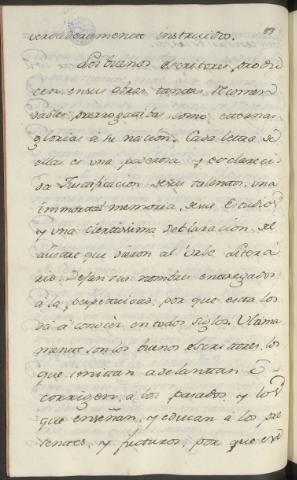 verdaderamente instruidos.
Los buenos escritores, produ
cen en sus obras, tantas recomen
dables prerrogatibas como, eternas
glorias à su nacion. Cada letra de
ellas es una poderosa y esclareci
da Justificacion de sus talentos, una
inmortal memoria, de sus Estudios
y una ciertissima declaracion, del
que dieron al orbe litera
rio. Dejan sus nombres entregados
à la perpetuidad, por que esta los
dà à conocer, en todos siglos. Ulama
mente, son los buenos escritores, los
que imitan adelantan è
corrigen, à los pasados, y los
que enseñan, y educan à los pre
sentes, y futuros, por que en